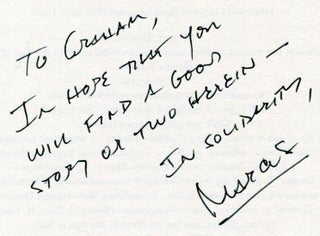 To Graham,
In hope that you
will find a good
story or two herein —
In solidarity,
Marcus